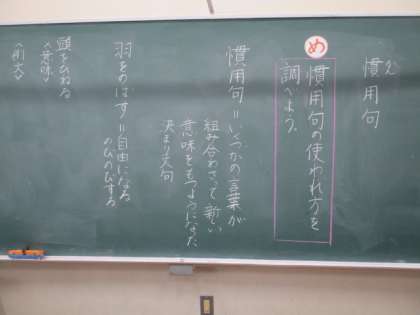 慣用句
め
慣用句の使われ方を
調べよう。
慣用句=いくつかの言葉が
組み合わさって新しい
意味をもつようになった
決まり文句
羽をのばす=自由になる
のびのびする
頭をひねる
<意味>